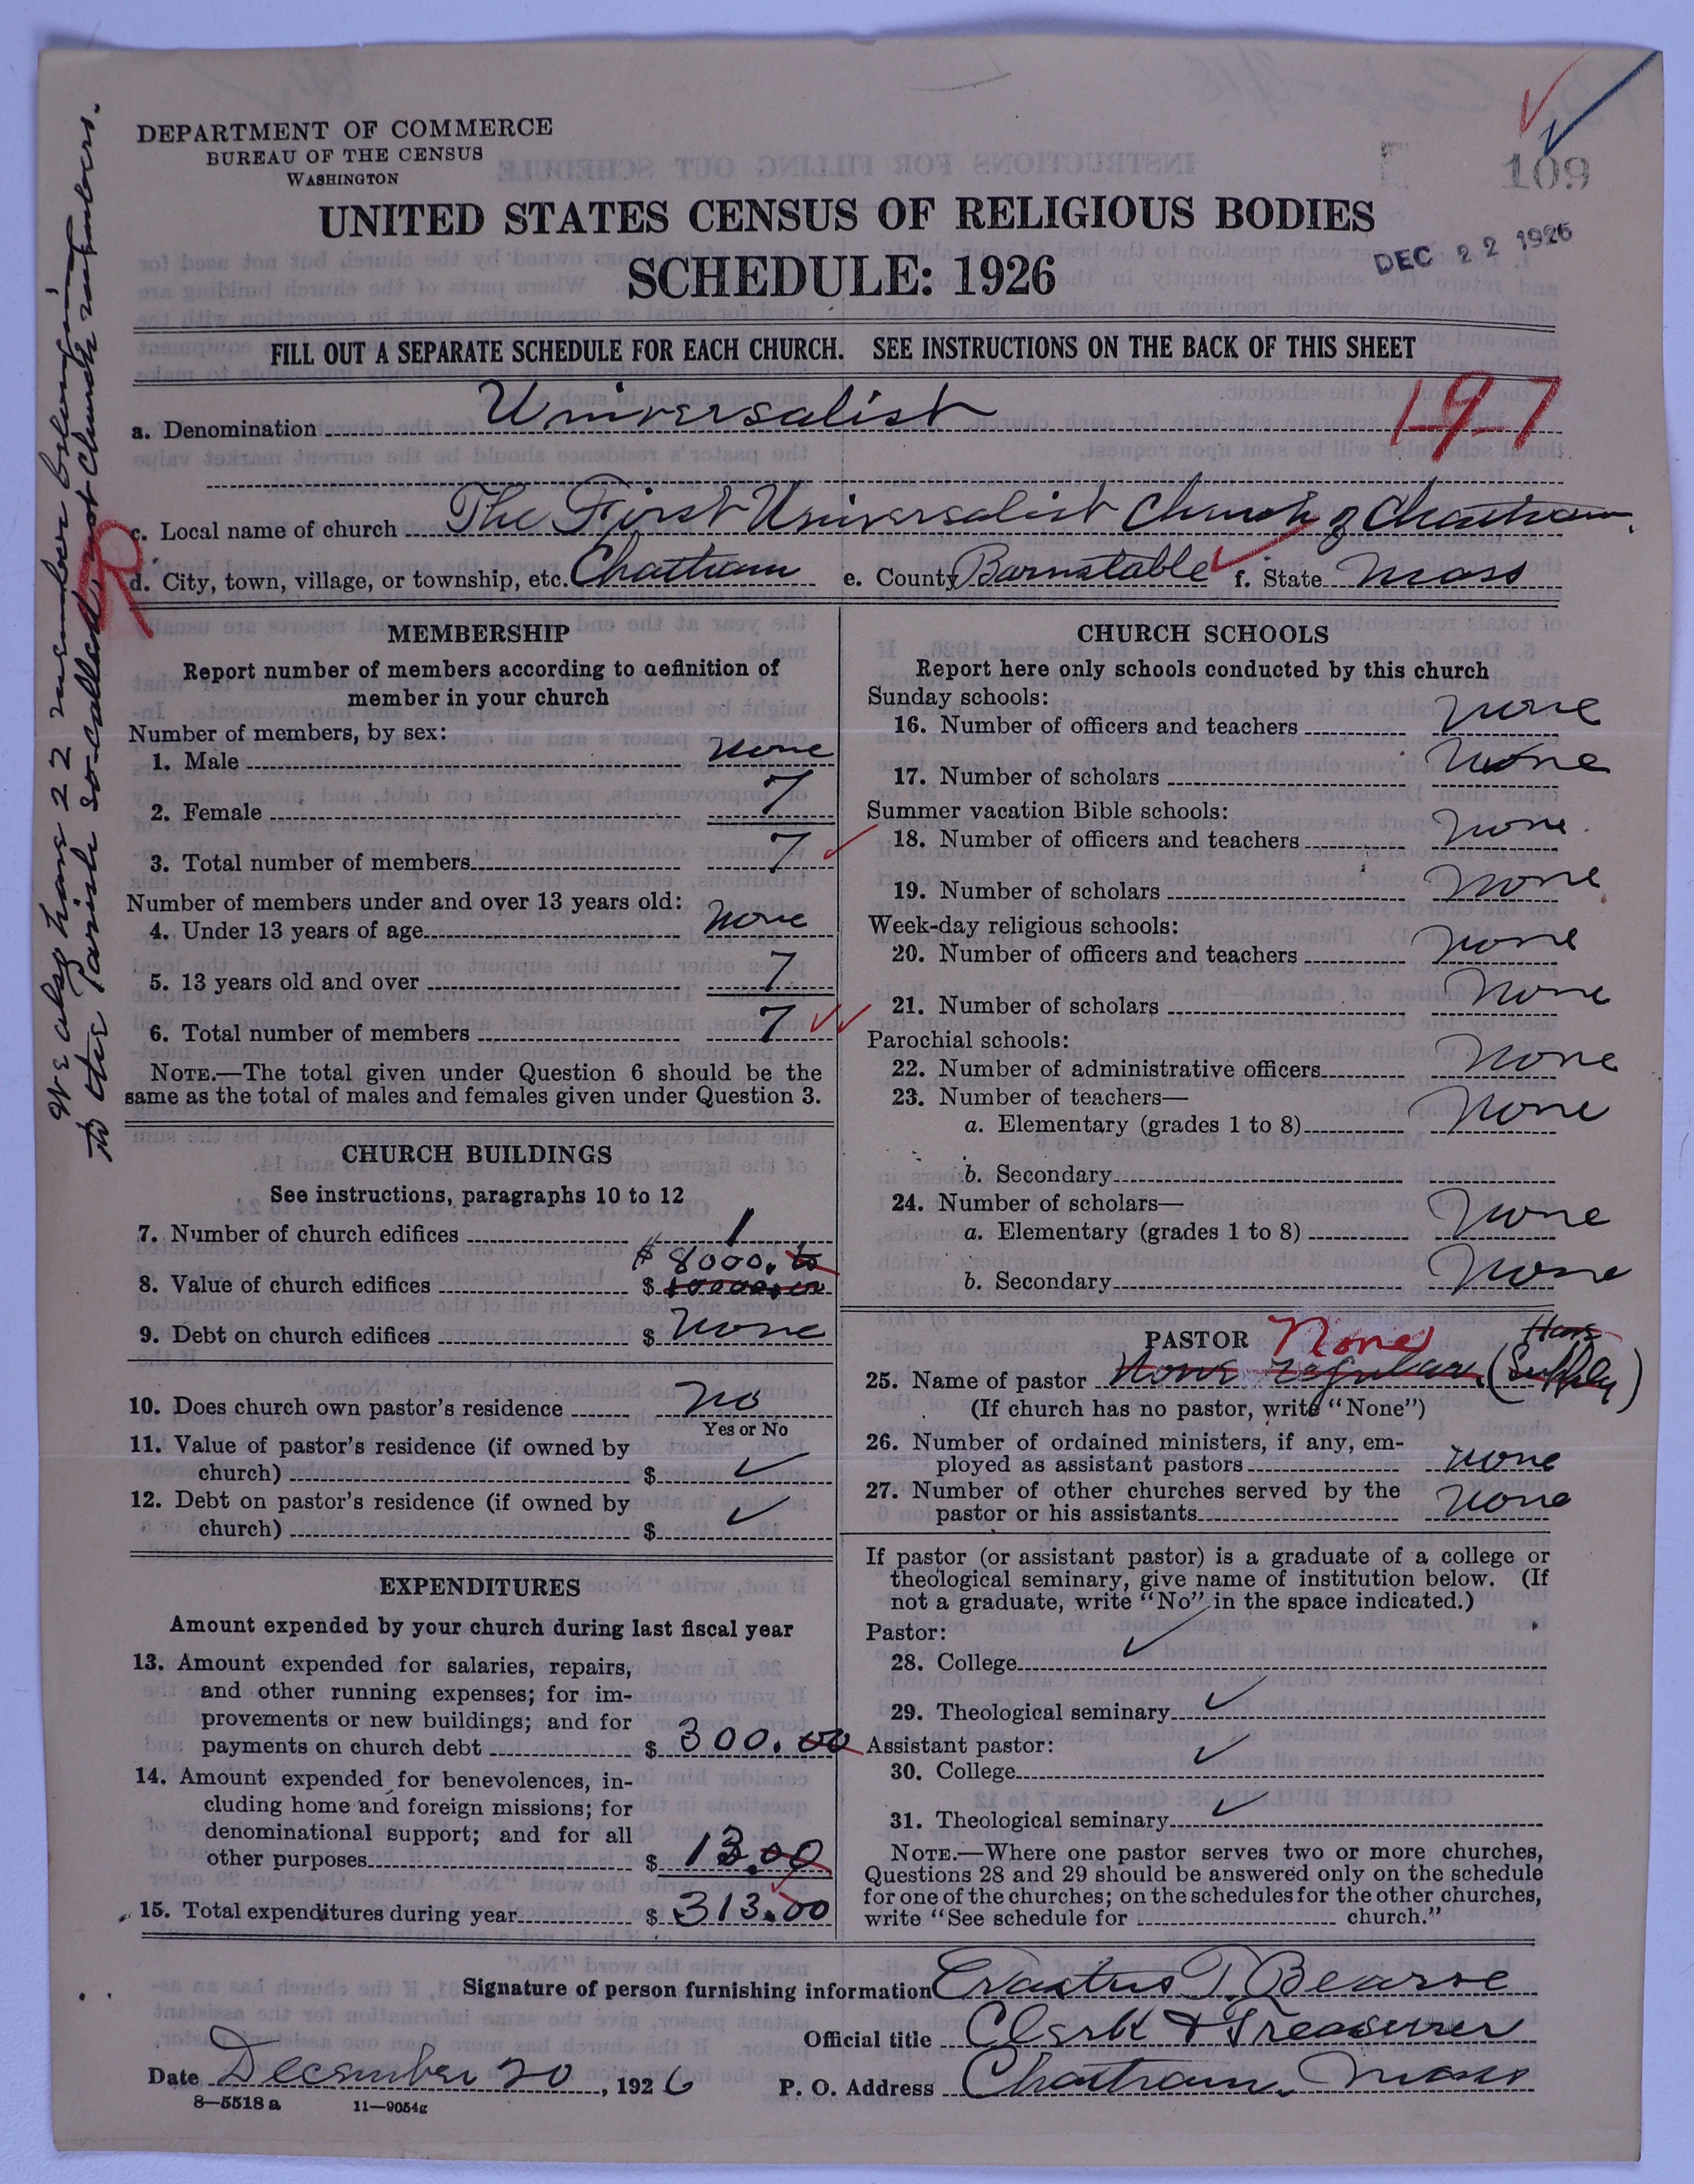 DEPARTMENT OF COMMERCE
BUREAU OF THE CENSUS
WASHINGTON
109
UNITED STATES CENSUS OF RELIGIOUS BODIES
SCHEDULE: 1926
DEC 22 1926
FILL OUT A SEPARATE SCHEDULE FOR EACH CHURCH. SEE INSTRUCTIONS ON THE BACK OF THIS SHEET
197
a. Denomination Universalist
c. Local name of church The First Universalist Church of Chatham.
d. City, town, village, or township, etc. Chatham e. County Barnstable f. State Mass
R
We also have 22 members belonging
to the Parish so-called not Church members.
MEMBERSHIP
Report number of members according to definition of
member in your church
Number of members, by sex:
1. Male none
2. Female 7
3. Total number of members 7
Number of members under and over 13 years old:
4. Under 13 years of age none
5. 13 years old and over 7
6. Total number of members 7
NOTE.—The total given under Question 6 should be the
same as the total of males and females given under Question 3.
CHURCH BUILDINGS
See instructions, paragraphs 10 to 12
7. Number of church edifices 1
$ 8000.00
8. Value of church edifices $ 10000.00
9. Debt on church edifices $ none
10. Does church own pastor's residence no
Yes or No
11. Value of pastor's residence (if owned by
church) $
12. Debt on pastor's residence (if owned by
church) $
EXPENDITURES
Amount expended by your church during last fiscal year
13. Amount expended for salaries, repairs,
and other running expenses; for im-
provements or new buildings; and for
payments on church debt $ 300.00
14. Amount expended for benevolences, in-
cluding home and foreign missions; for
denominational support; and for all
other purposes $ 13.00
15. Total expenditures during year $ 313.00
CHURCH SCHOOLS
Report here only schools conducted by this church
Sunday schools:
16. Number of officers and teachers none
17. Number of scholars none
Summer vacation Bible schools:
18. Number of officers and teachers none.
19. Number of scholars none
Week-day religious schools:
20. Number of officers and teachers none
21. Number of scholars none
Parochial schools:
22. Number of administrative officers none
23. Number of teachers—
a. Elementary (grades 1 to 8) none
b. Secondary
24. Number of scholars—
a. Elementary (grades 1 to 8) none
b. Secondary none
PASTOR None
25. Name of pastor None regular. (Supply)
(If church has no pastor, write "None")
26. Number of ordained ministers, if any, em-
ployed as assistant pastors none
27. Number of other churches served by the
pastor or his assistants none
If pastor (or assistant pastor) is a graduate of a college or
theological seminary, give name of institution below. (If
not a graduate, write "No" in the space indicated.)
Pastor:
28. College
29. Theological seminary
Assistant pastor:
30. College
31. Theological seminary
NOTE.—Where one pastor serves two or more churches,
Questions 28 and 29 should be answered only on the schedule
for one of the churches; on the schedules for the other churches,
write "See schedule for church."
Signature of person furnishing information Erastus T. Bearse
Official title Clerk & Treasurer
Date December 20, 1926 P. O. Address Chatham. Mass
8—5518a 11—9054g